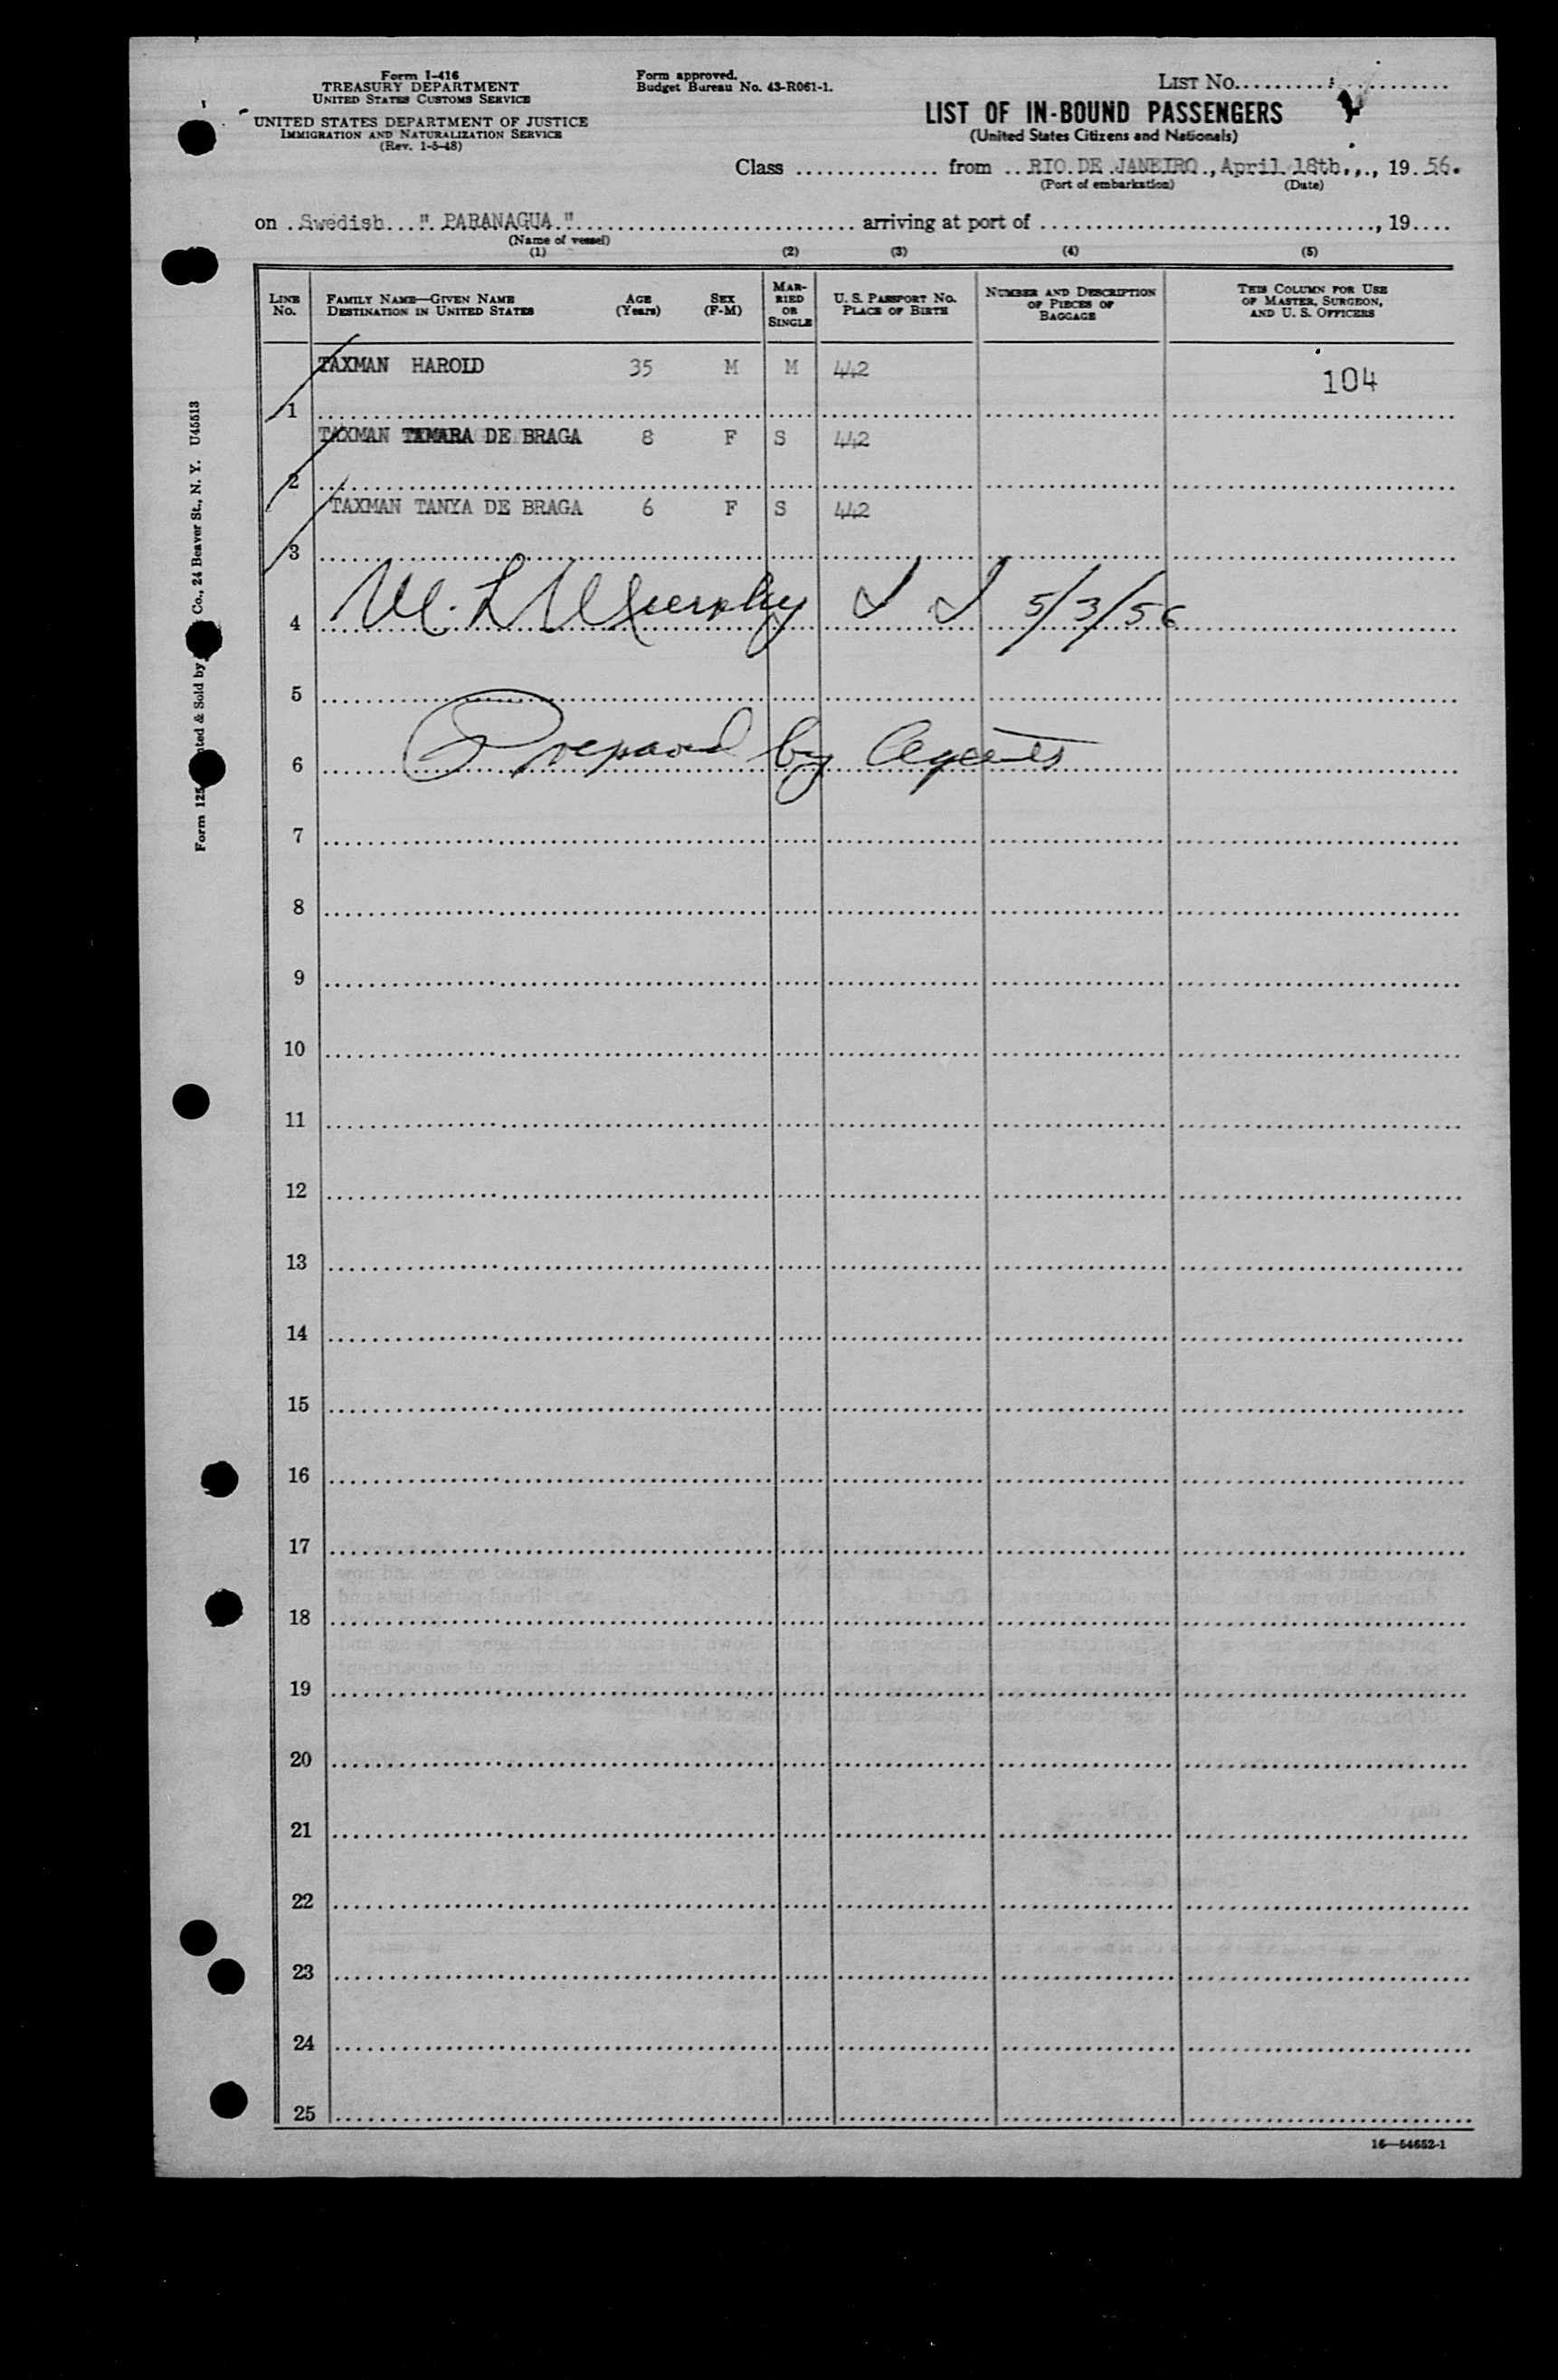 Form I-416
TREASURY DEPARTMENT
UNITED STATES CUSTOMS SERVICE
UNITED STATES DEPARTMENT OF JUSTICE
IMMIGRATION AND NATURALIZATION SERVICE
(Rev. 1-5-48)
Form approved.
Budget Bureau No. 43-R061-1.
LIST No.
LIST OF IN-BOUND PASSENGERS
(United States Citizens and Nationals)
Class from RIO DE JANEIRO, April 18th., 19 56.
(Port of embarkation) (Date)
on Swedish " PARANAGUA " arriving at port of , 19
(Name of vessel)
(1) (2) (3) (4) (5)
LINE No. FAMILY NAME—GIVEN NAME DESTINATION IN UNITED STATES AGE (Years) SEX (F-M) MARRIED OR SINGLE U. S. PASSPORT No. PLACE OF BIRTH NUMBER AND DESCRIPTION OF PIECES OF BAGGAGE THIS COLUMN FOR USE OF MASTER, SURGEON, AND U. S. OFFICERS
TAXMAN HAROLD 35 M M 442 104
1
TAXMAN TAMARA DE BRAGA 8 F S 442
2
TAXMAN TANYA DE BRAGA 6 F S 442
3
4 M. L. Murphy I I 5/3/56
5
6 Prepared by Agents
7
8
9
10
11
12
13
14
15
16
17
18
19
20
21
22
23
24
25
16—54652-1
Co., 24 Beaver St., N. Y. U45513